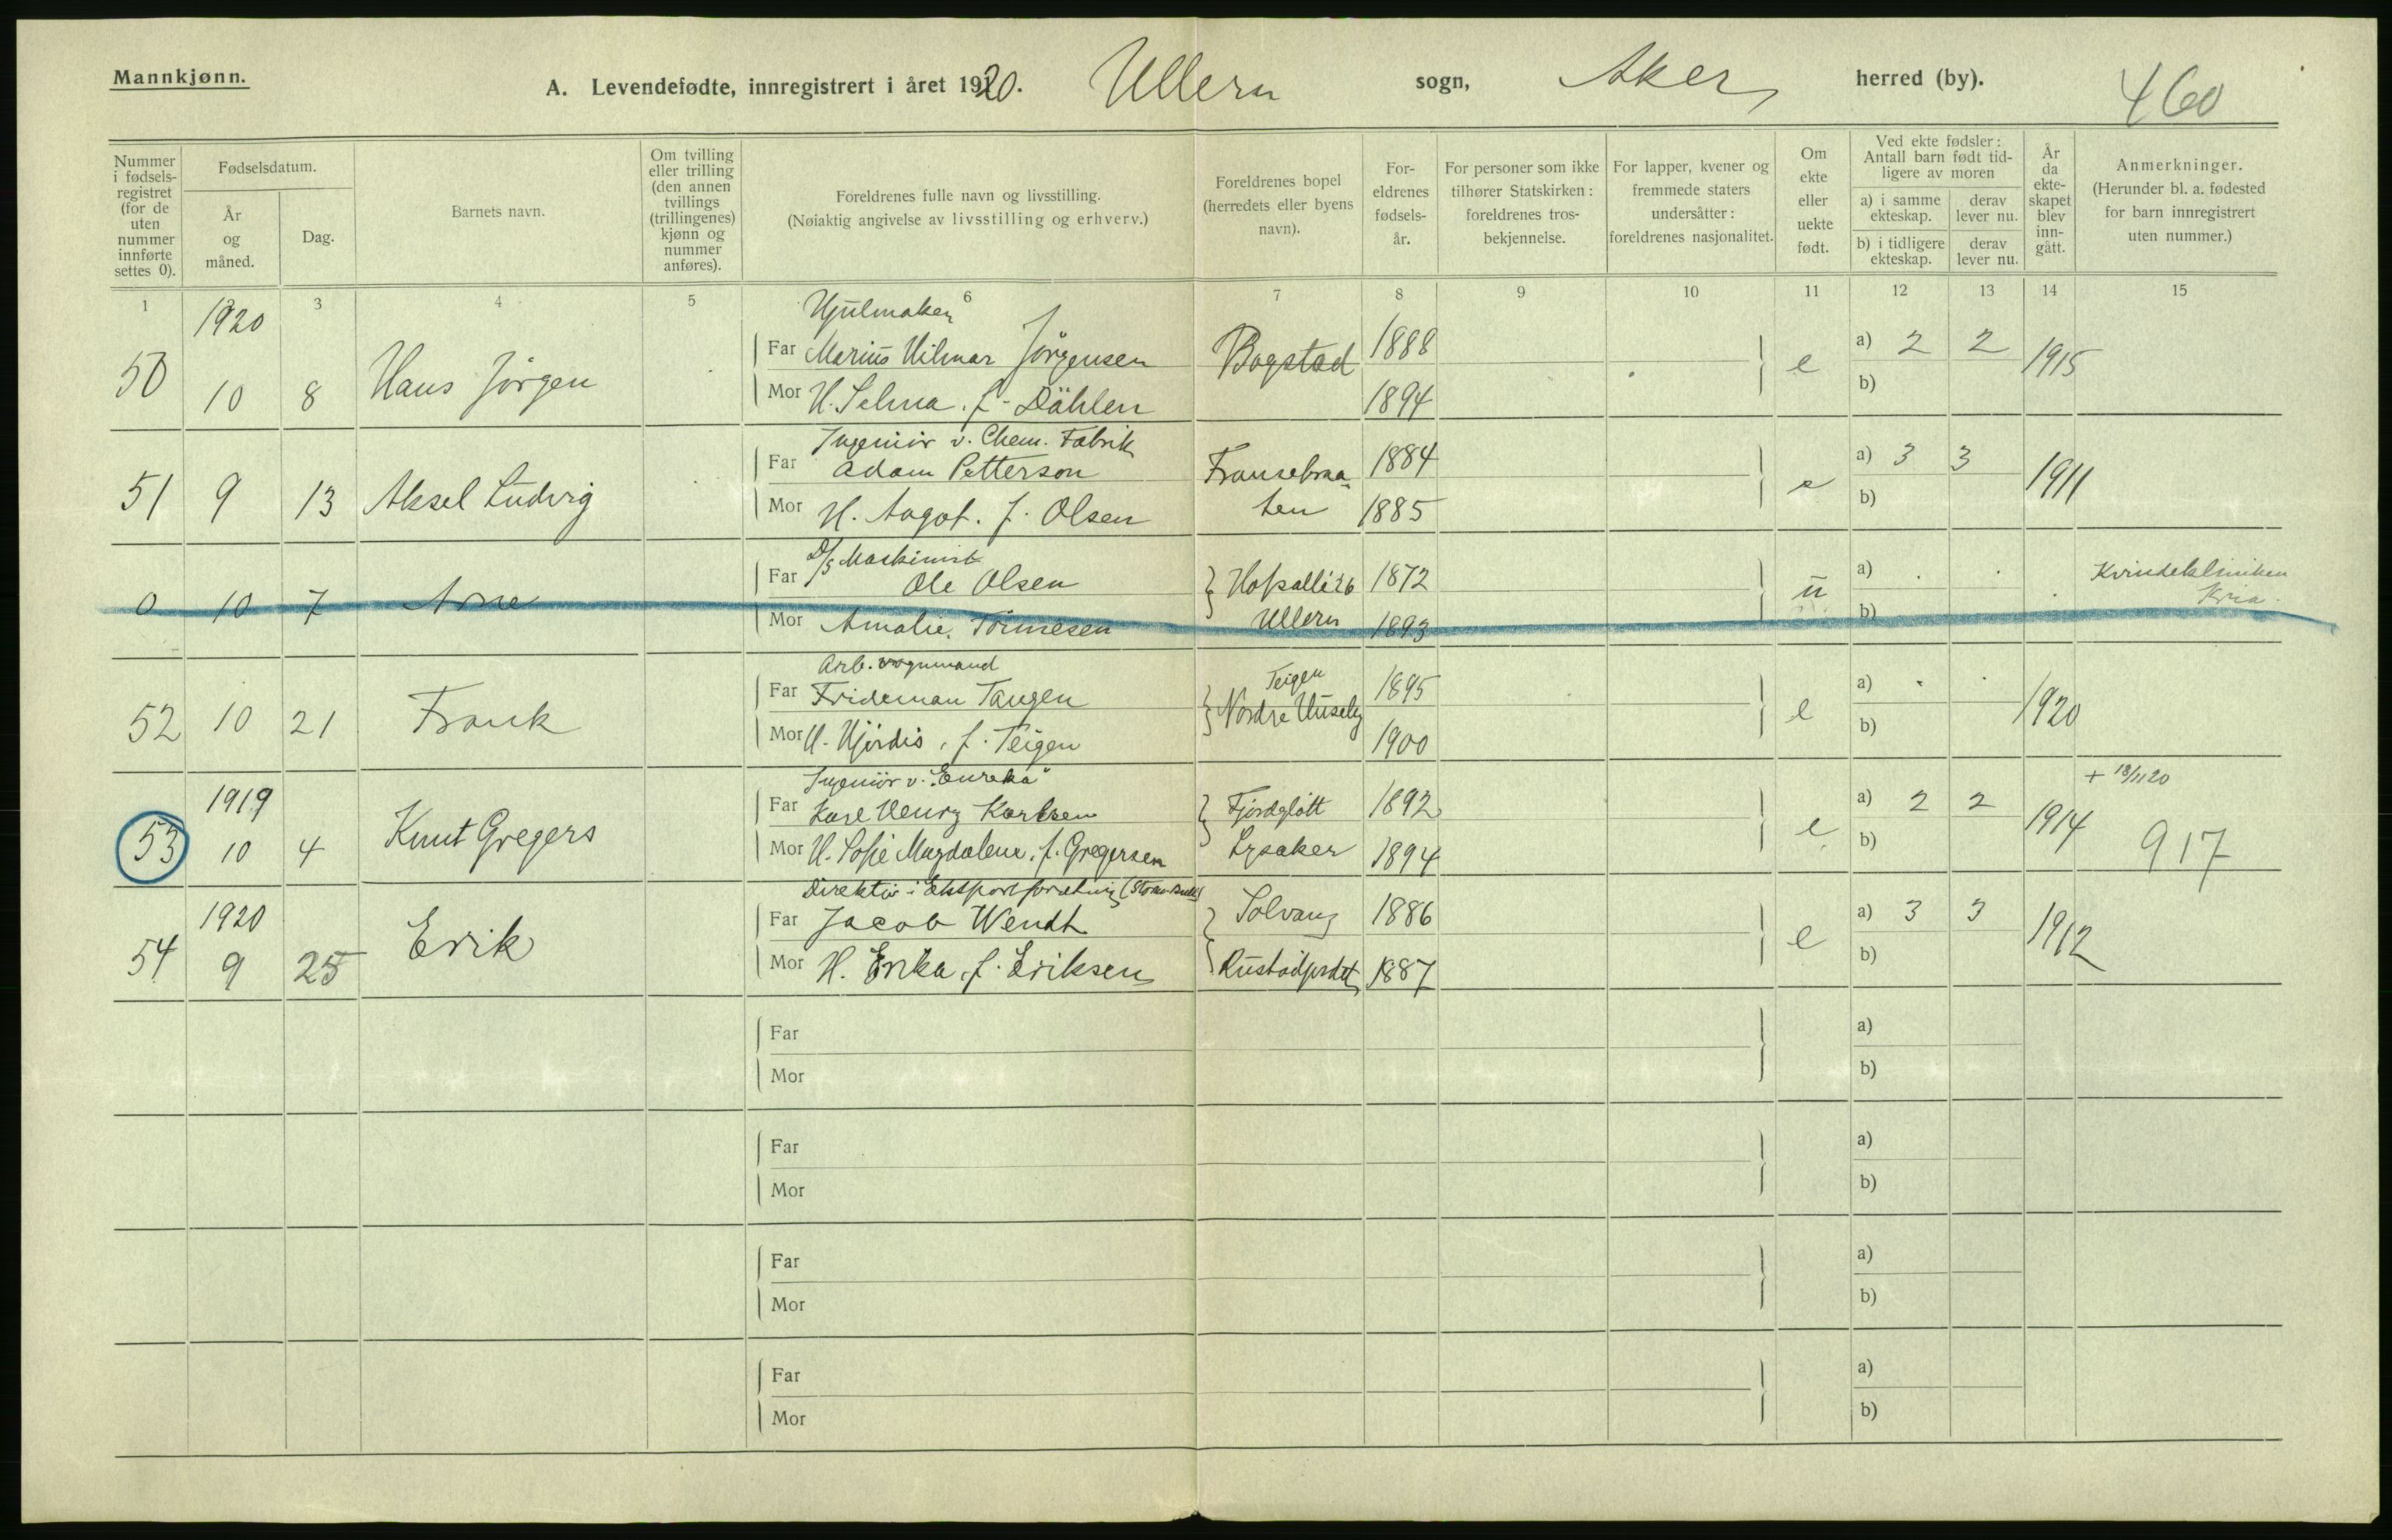 Mannkjønn.
A. Levendefødte, innregistrert i året 1920. Ullern sogn, Aker herred (by). 460
Nummer i fødselsregistret (for de uten nummer innførte settes 0).
Fødselsdatum.
År og måned.
Dag.
Barnets navn.
Om tvilling eller trilling (den annen tvillings (trillingenes) kjønn og nummer anføres).
Foreldrenes fulle navn og livsstilling.
(Nøiaktig angivelse av livsstilling og erhverv.)
Foreldrenes bopel (herredets eller byens navn).
Foreldrenes fødselsår.
For personer som ikke tilhører Statskirken: foreldrenes trosbekjennelse.
For lapper, kvener og fremmede staters undersåtter: foreldrenes nasjonalitet.
Om ekte eller uekte født.
Ved ekte fødsler: Antall barn født tidligere av moren
a) i samme ekteskap.
derav lever nu.
b) i tidligere ekteskap.
derav lever nu.
År da ekteskapet blev inngått.
Anmerkninger.
(Herunder bl. a. fødested for barn innregistrert uten nummer.)
1 3 4 5 6 7 8 9 10 11 12 13 14 15
1920
Hjulmaker
50 10 8 Hans Jørgen Far Marius Hilmar Jørgensen Bogstad 1888 e a) 2 2 1915
Mor H. Selma. f. Dåhlen 1894 b)
Ingeniør v. Chem. Fabrik
51 9 13 Aksel Ludvig Far Adam Petterson Fransebraaten 1884 e a) 3 3 1911
Mor H. Aagot. f. Olsen 1885 b)
D/S Maskinist
0 10 7 Arne Far Ole Olsen 1872 u a) . . Kvindekliniken Kria.
Mor Amalie. Tönnesen Ullern 1893 b)
Arb. vognmand
Teigen
52 10 21 Frank Far Frideman Tangen Nordre Huseby 1895 e a) . . 1920
Mor H. Hjördis, f. Teigen 1900 b)
Ingeniør v. "Eureka"
1919 + 18/11 20
53 10 4 Knut Gregers Far Karl Henry Karlsen Fjordgløtt 1892 e a) 2 2 1914 917
Mor H. Sofie Magdalene. f. Gregersen Lysaker 1894 b)
Direktør i Eksportforretning
1920
54 9 25 Erik Far Jacob Wendt Solvang 1886 e a) 3 3 1912
Mor H. Erika, f. Eriksen Rustadjordet 1887 b)
Far a)
Mor b)
Far a)
Mor b)
Far a)
Mor b)
Far a)
Mor b)